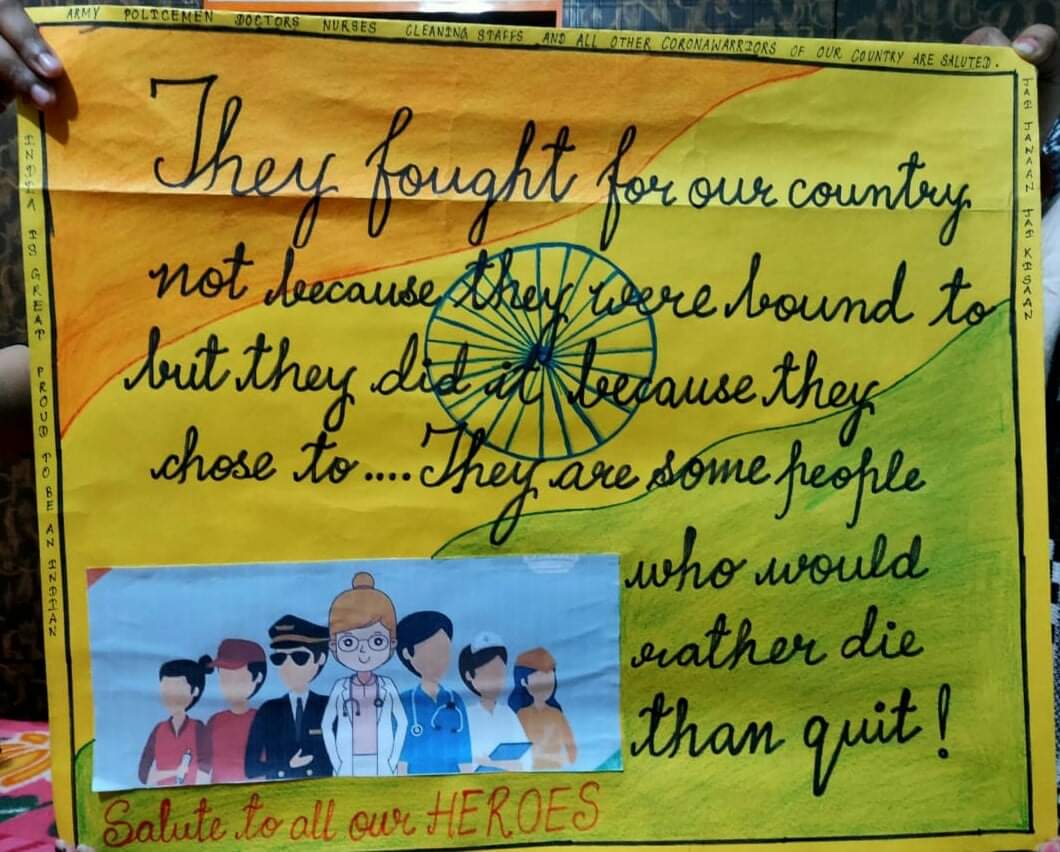 ARMY POLICEMEN DOCTORS NURSES CLEANING STAFFS AND ALL OTHER CORONAWARRIORS OF OUR COUNTRY ARE SALUTED.
INDIA IS GREAT PROUD TO BE AN INDIAN
They fought for our country
not because they were bound to
but they did it because they
chose to.... They are some people
who would
rather die
than quit!
Salute to all our HEROES
JAI JAWAAN JAI KISAAN